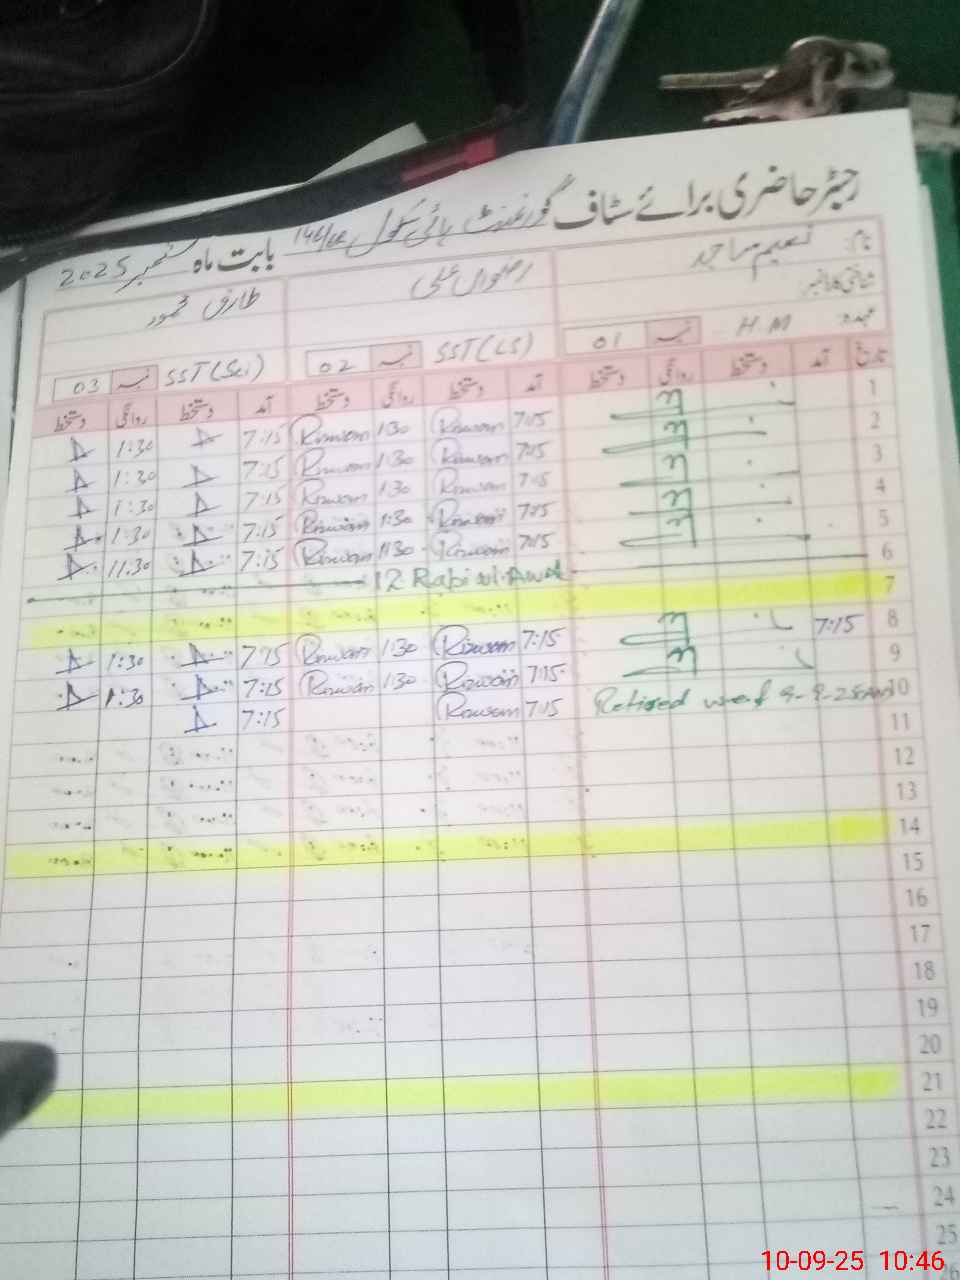 رجسٹر حاضری برائے سٹاف گورنمنٹ ہائی سکول بابت ماہ ستمبر 2025
نام: نسیم ساجد رضوان علی طارق محمود
شناختی کارڈ نمبر
عہدہ H.M نمبر 01 SST (LS) نمبر 02 SST (Sci) نمبر 03
تاریخ آمد دستخط روانگی دستخط آمد دستخط روانگی دستخط آمد دستخط روانگی دستخط
1 7:15 Rizwan 1:30 Rizwan 7:15 1:30
2 7:15 Rizwan 1:30 Rizwan 7:15 1:30
3 7:15 Rizwan 1:30 Rizwan 7:15 1:30
4 7:15 Rizwan 1:30 Rizwan 7:15 1:30
5 7:15 Rizwan 1:30 Rizwan 7:15 1:30
6 12 Rabi ul Awal
7
8 7:15 7:15 Rizwan 1:30 Rizwan 7:15 1:30
9 7:15 Rizwan 1:30 Rizwan 7:15 1:30
10 Retired w.e.f 9-9-25 7:15 Rizwan 7:15
11
12
13
14
15
16
17
18
19
20
21
22
23
24
25
26
10-09-25 10:46